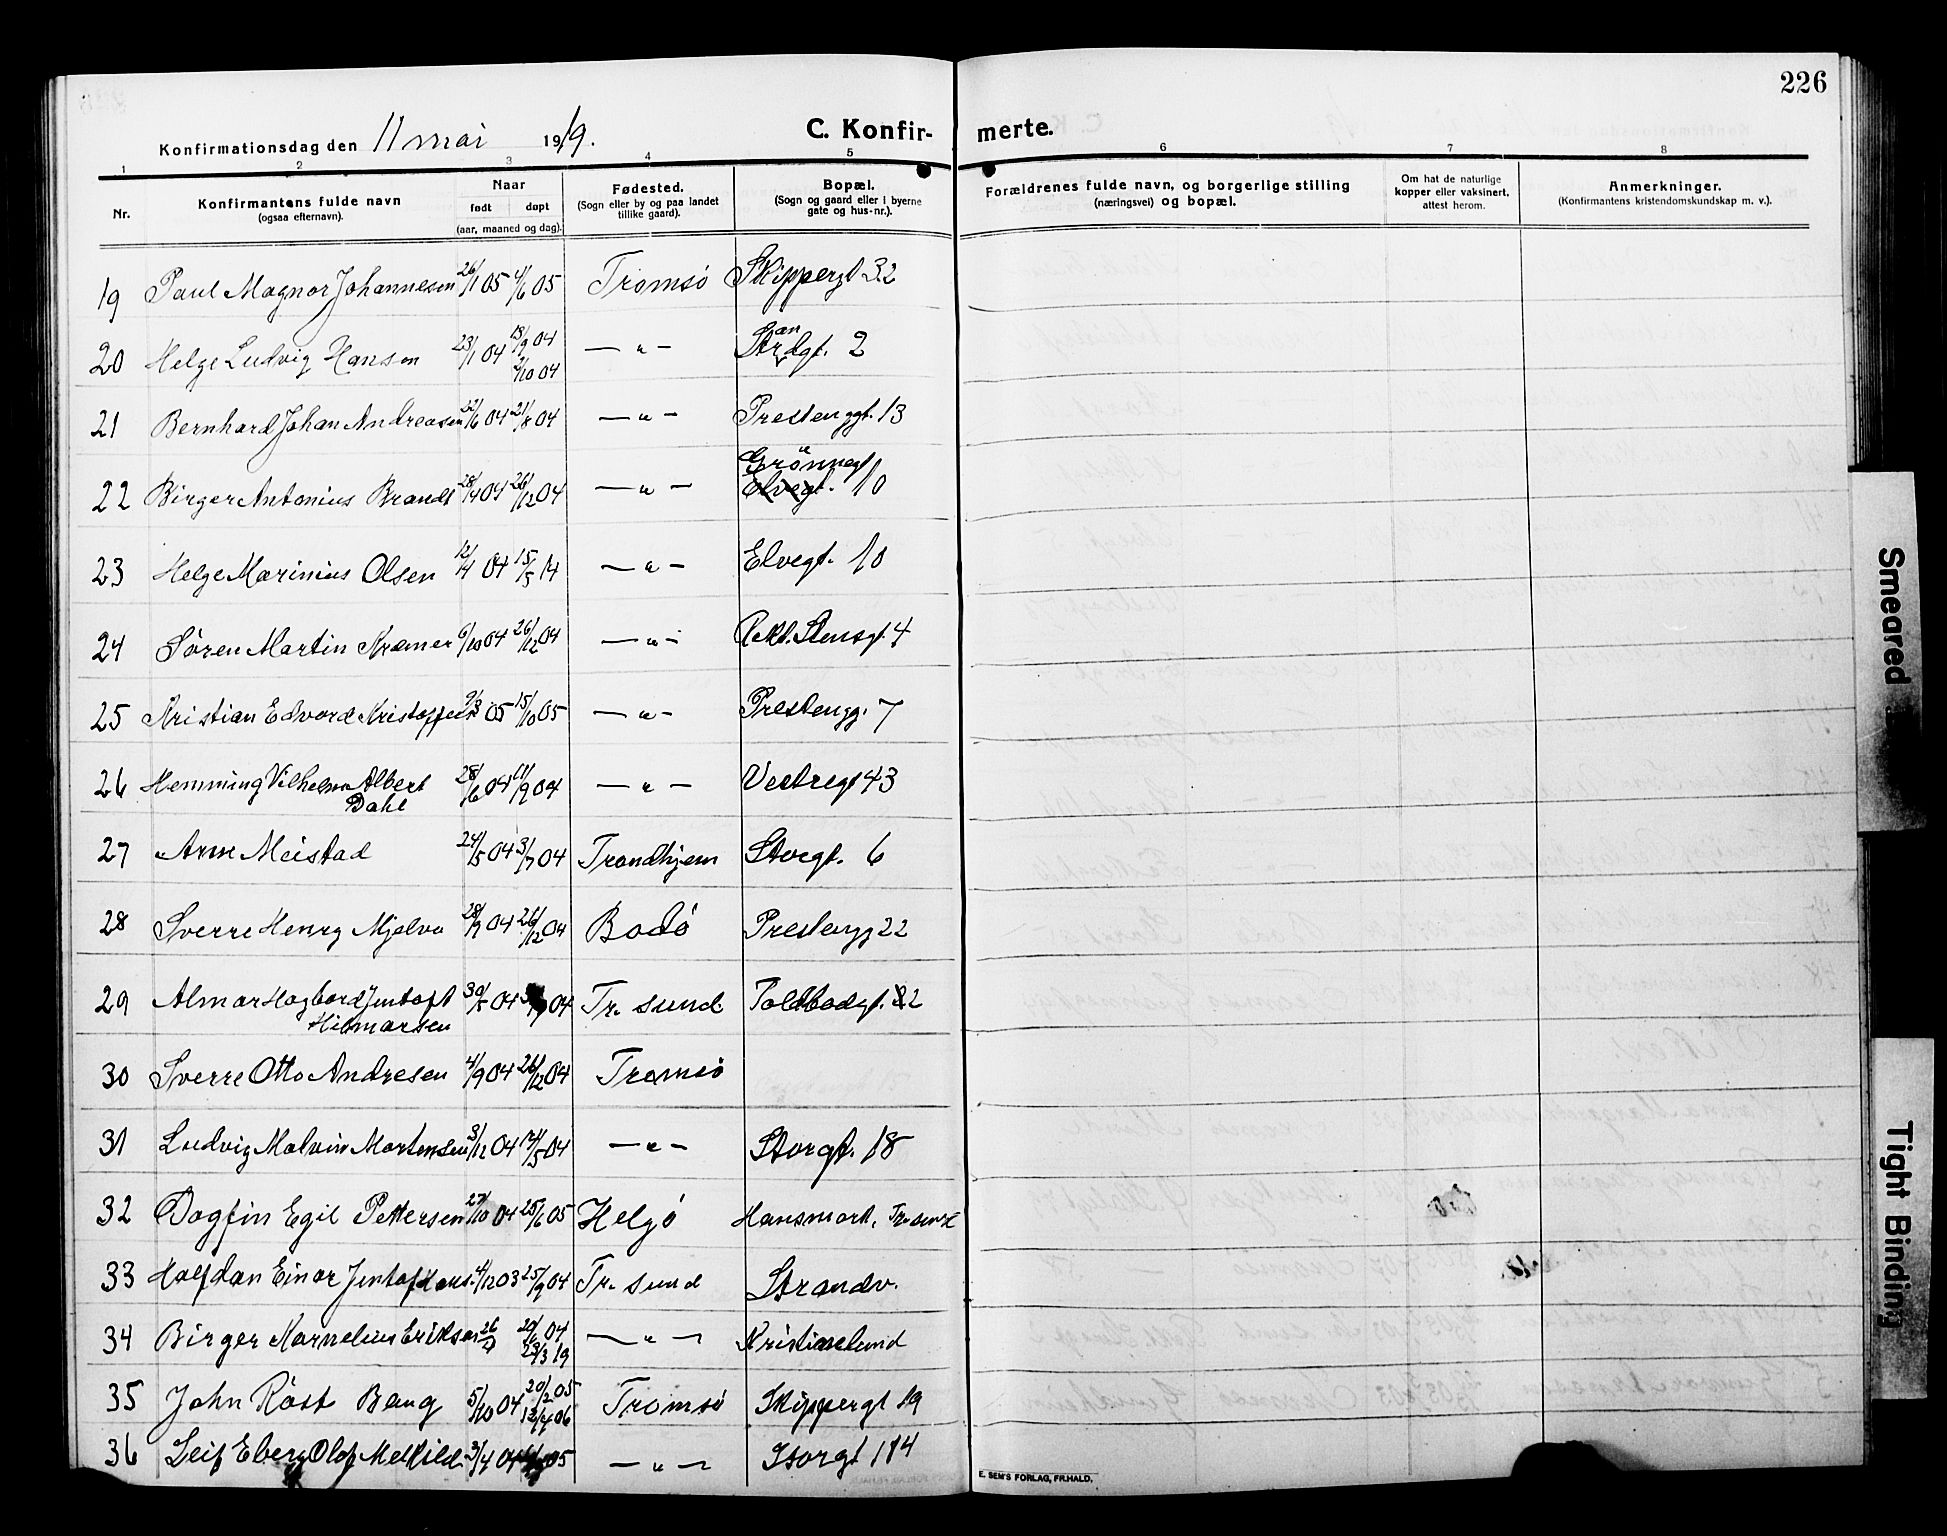 226
Konfirmationsdag den 11 mai 1919.
C. Konfirmerte.
1 2 3 4 5 6 7 8
Nr.
Konfirmantens fulde navn
(ogsaa efternavn).
Naar
født døpt
(aar, maaned og dag).
Fødested.
(Sogn eller by og paa landet
tillike gaard).
Bopæl.
(Sogn og gaard eller i byerne
gate og hus-nr.).
Forældrenes fulde navn, og borgerlige stilling
(næringsvei) og bopæl.
Om hat de naturlige
kopper eller vaksinert,
attest herom.
Anmerkninger.
(Konfirmantens kristendomskundskap m. v.).
19 Paul Magnor Johannesen 26/1 05 4/6 05 Tromsö Skippergt 32
20 Helge Ludvig Hansen 23/1 04 18/9 04 2/10 04 — " — Strandgt. 2
21 Bernhard Johan Andreasen 22/6 04 21/8 04 — " — Prestenggt. 13
22 Birger Antonius Brandt 28/4 04 26/12 04 — " — Grönnegt Elvegt. 10
23 Helge Marinius Olsen 12/4 04 15/5 14 — " — Elvegt. 10
24 Sören Martin Kræmer 6/10 04 26/12 04 — " — Stensgt. 4
25 Kristian Edvard 9/3 05 15/10 05 — " — Prestengg. 7
26 Hemming Vilhelm Albert
Dahl 28/6 04 11/9 04 — " — Vestregt 43
27 Arne Meistad 24/5 04 3/7 04 Trondhjem Storgt. 6
28 Sverre Henry Mjelva 04 26/12 04 Bodö Prestengg 22
29 Almar Hagbard Jentoft
Hilmarsen 30/5 04 04 Tr. sund Toldbodgt. 2
30 Sverre Otto Andresen 4/9 04 26/12 04 Tromsö
31 Ludvig Malvin Mortensen 3/12 04 04 — " — Storgt. 18
32 Dagfin Egil Pettersen 27/10 04 25/6 05 Helgö Tr. sund
33 Halfdan Einar Jentoft Hans. 4/12 03 25/9 04 Tr. sund Strandv.
34 Birger Kornelius Eriksen 04 23/3 19 — " — Kristianelund
35 John Röst Bang 5/10 04 20/2 05 06 Tromsö Skippergt 19
36 Leif Olof 3/4 04 05 — " — Storgt 114
E. SEM'S FORLAG, FR.HALD.
Smeared
Tight Binding